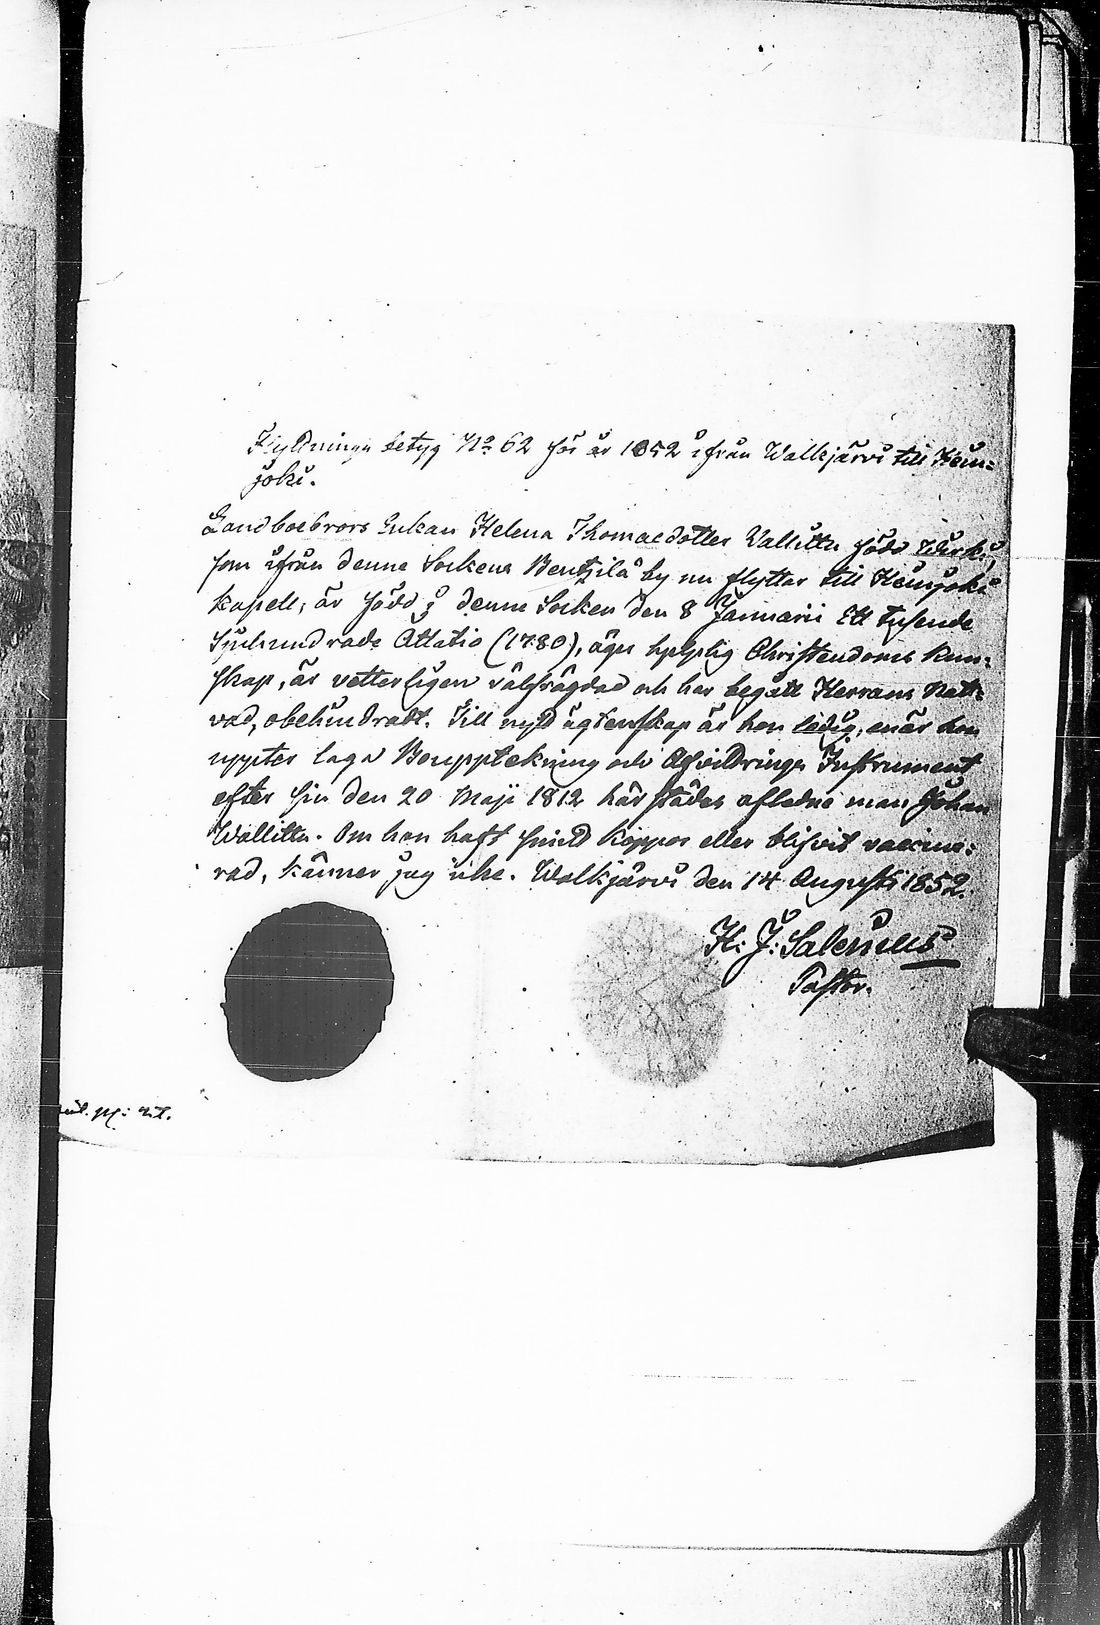 Flyttnings betyg No 62 för år 1852 ifrån Walkjärvi till Hein=
joki.
Landboebrors Enkan Helena Thomaedotter Wallittu född
som ifrån denne Sockens Bentzilä by nu flyttar till Heinjoki
kapell, är född i denne Socken den 8 Januarii Ett tusende
Sjuhundrade Åttatio (1780), äger hjelplig Christendoms kun=
skap, är vetterligen välfrägdad och har begått Herrans Natt=
vard, obehindradt. Till nytt ägtenskap är hon ledig, enär hon
uppter laga Bouppteckning och Afvittrings Instrument
efter sin den 20 Maji 1812 här städes afledne man Johan
Wallittu. Om hon haft smitt koppor eller blifvit vaccine=
rad, känner jag icke. Walkjärvi den 14 Augusti 1852.
H: J: Salenius
Pastor.